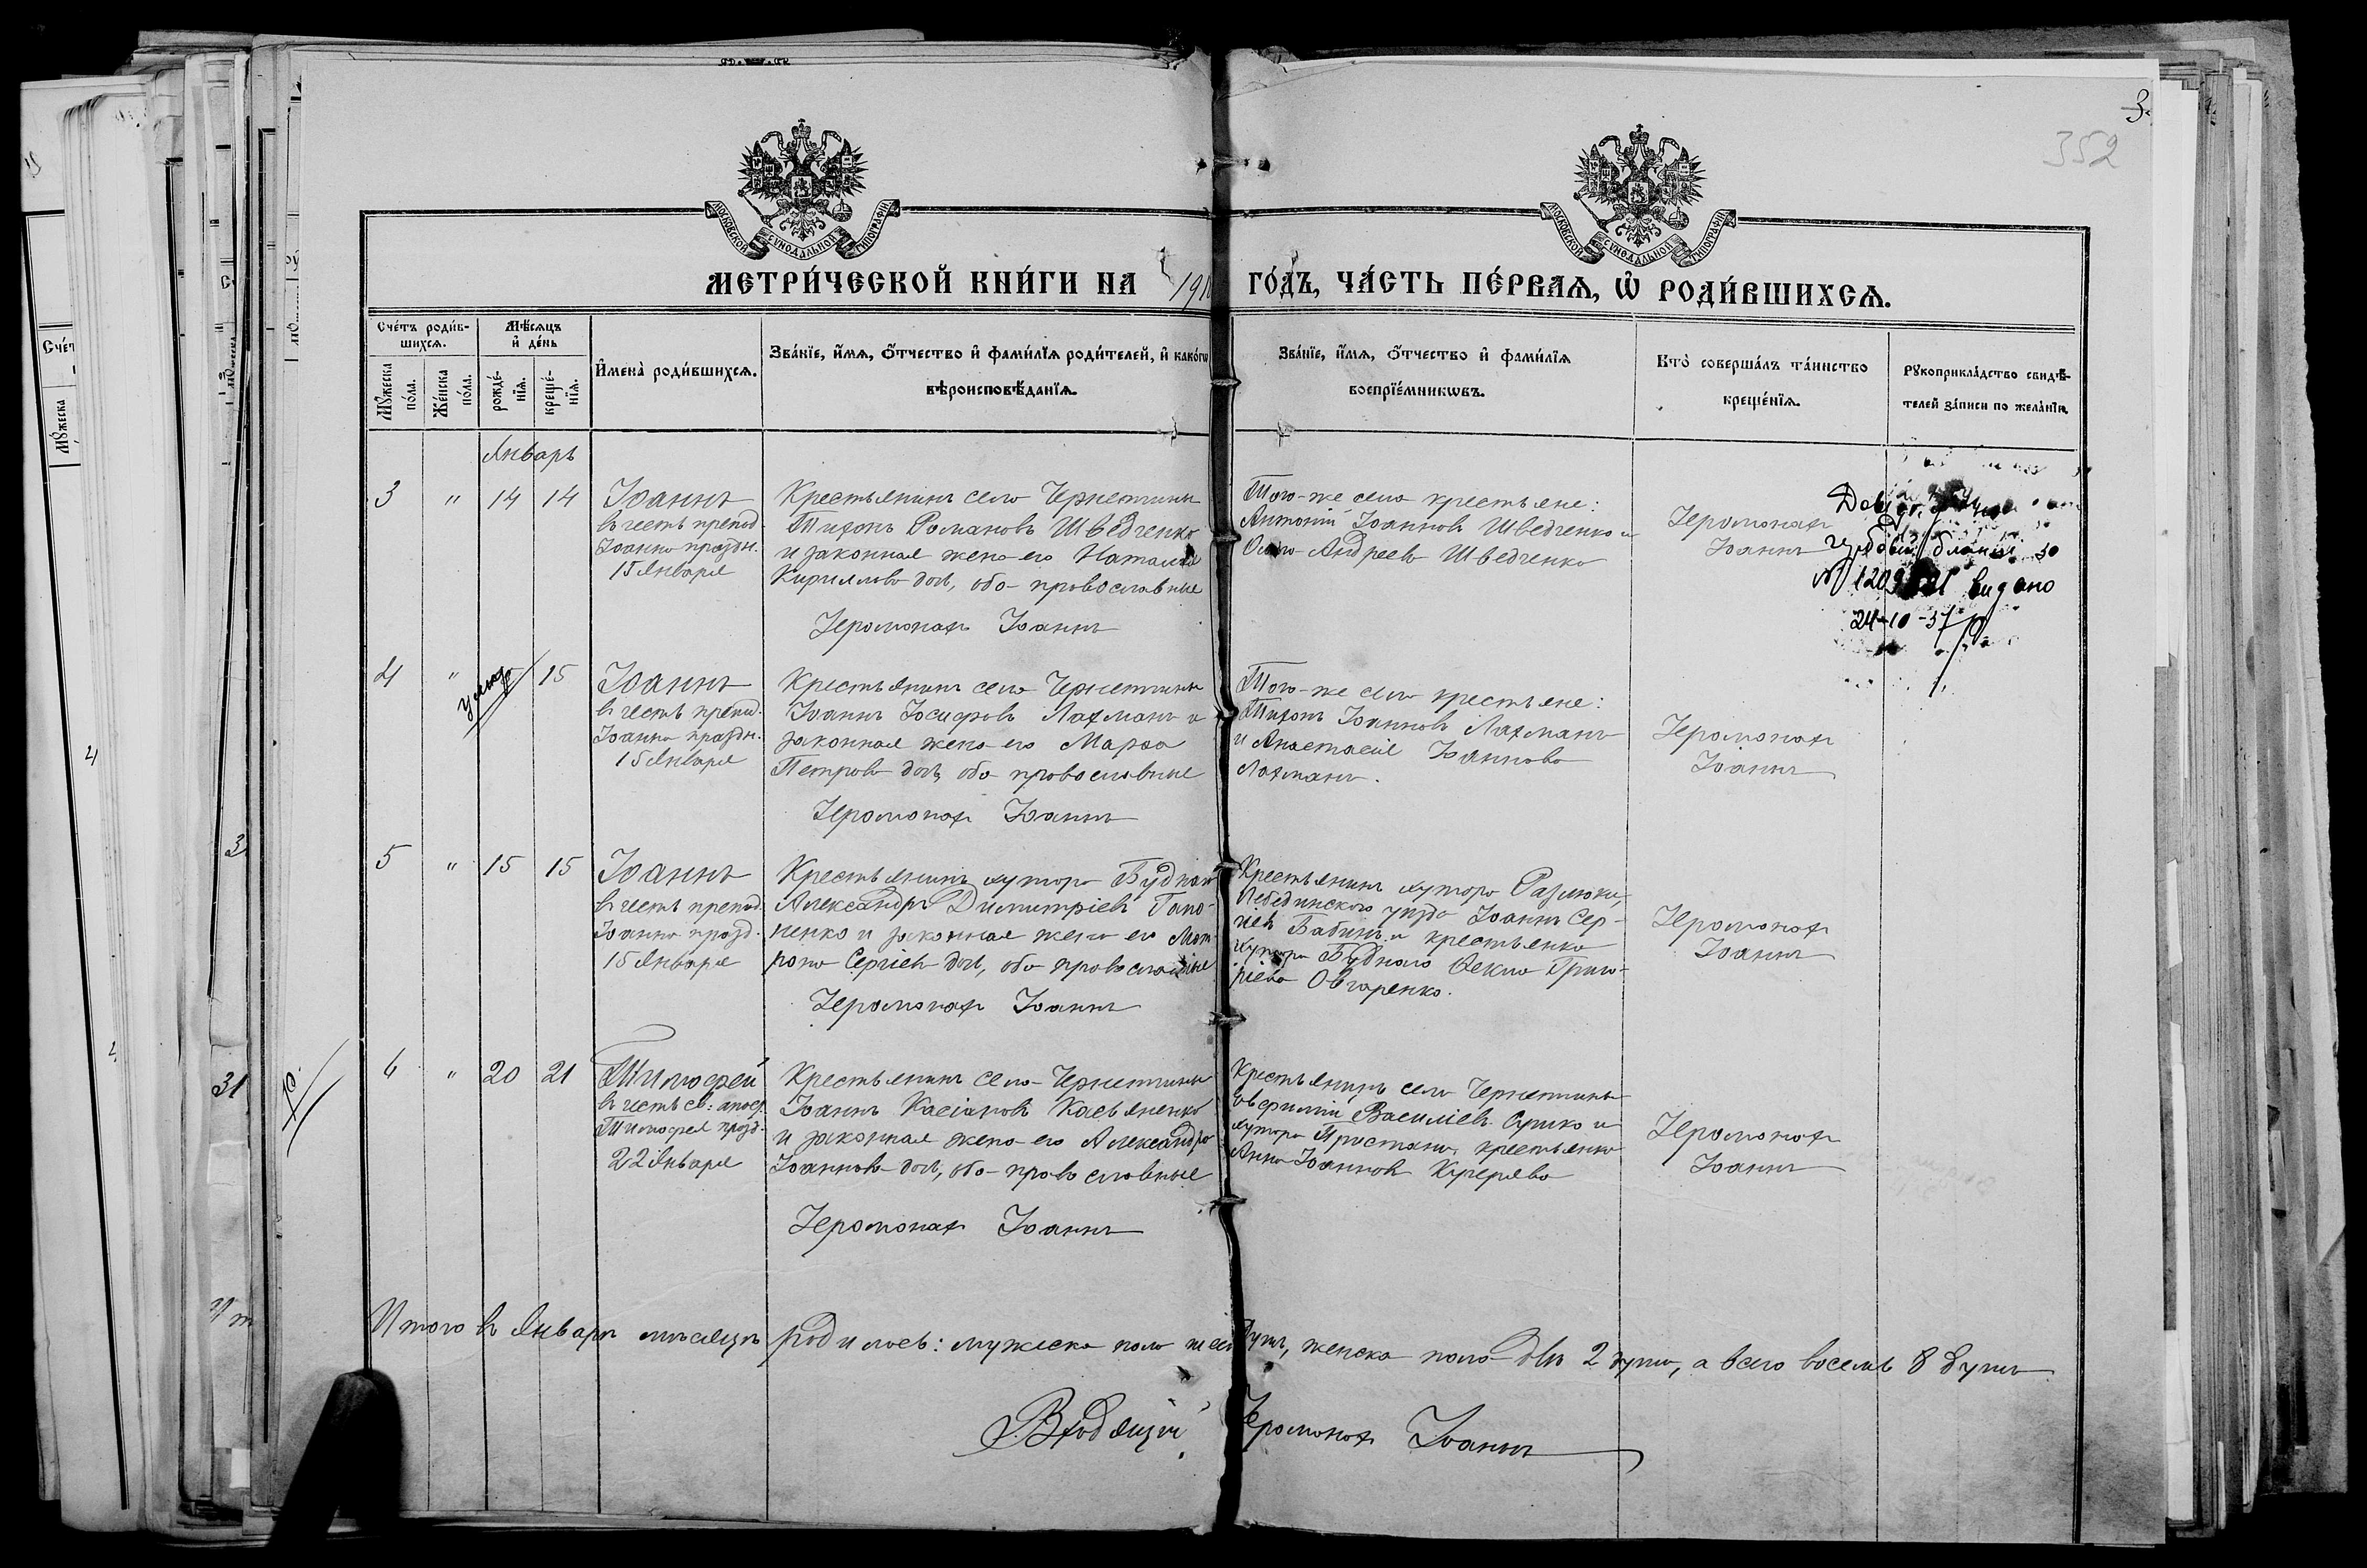 3
352
МОСКОВСКОЙ СУНОДАЛЬНОЙ ТИПОГРАФІИ
МОСКОВСКОЙ СУНОДАЛЬНОЙ ТИПОГРАФІИ
МЕТРИ́ЧЕСКОЙ КНИ́ГИ НА 191
ГО́ДЪ, ЧА́СТЬ ПЕ́РВАѦ, Ѡ҆ РОДИ́ВШИХСѦ.
Сче́тъ роди́в-
шихсѧ.
Мꙋ́жеска
по́ла.
Же́нска
по́ла.
Мѣ́сѧцъ
и҆ де́нь
рожде́-
нїѧ.
креще́-
нїѧ.
И҆мена̀ роди́вшихсѧ.
Зва́нїе, и҆́мѧ, ѻ҆́тчество и҆ фами́лїѧ роди́телей, и҆ како́гѡ
вѣроисповѣ́данїѧ.
Зва́нїе, и҆́мѧ, ѻ҆́тчество и҆ фами́лїѧ
воспрїе́мникѡвъ.
Кто̀ соверша́лъ та́инство
креще́нїѧ.
Рꙋкоприкла́дство свидѣ́-
телей за́писи по жела́нїю.
Январь
3 " 14 14
Іоаннъ
въ честь препод.
Іоанна праздн.
15 Января
Крестьянинъ села Чернетчины
Тихонъ Романовъ Шведченко
и законная жена его Наталія
Кириллова доч, оба православные
Іеромонах Іоаннъ
Того-же села крестьяне:
Антоній Іоанновъ Шведченко и
Андреева Шведченко
Іеромонах
Іоаннъ
№ 1209 видано
24-10-37
4 " 15
умер
Іоаннъ
въ честь препод.
Іоанна праздн.
15 Января
Крестьянинъ села Чернетчины
Іоаннъ Іосифовъ Лахманъ и
законная жена его Марфа
Петрова доч, оба православные
Іеромонах Іоаннъ
Того-же села крестьяне:
Тихонъ Іоанновъ Лахманъ
и Анастасія Іоаннова
Лахманъ.
Іеромонах
Іоаннъ
5 " 15 15
Іоаннъ
въ честь препод.
Іоанна празд.
15 Января
Крестьянинъ хутора Буднаго
Александръ Димитріевъ Гапо-
ненко и законная жена его Мат-
рона Сергіева доч, оба православные
Іеромонах Іоаннъ
Крестьянинъ хутора
Лебединскаго уезда Іоаннъ Сер-
гіевъ Бабичъ и крестьянка
хутора Буднаго Фекла Григо-
ріева Овчаренко.
Іеромонах
Іоаннъ
6 " 20 21
Тимофей
въ честь св: апос.
Тимофея празд.
22 Января
Крестьянинъ села Чернетчины
Іоаннъ Касіановъ Касьяненко
и законная жена его Александра
Іоаннова доч, оба православные
Іеромонах Іоаннъ
Крестьянинъ села Чернетчины
Евфимій Васильевъ Сушко и
хутора Пристань крестьянка
Анна Іоаннова
Іеромонах
Іоаннъ
Итого въ Январѣ мѣсяцѣ родилось: мужеска пола душъ, женска пола двѣ 2 души, а всего восемь 8 душъ
Іеромонах Іоаннъ